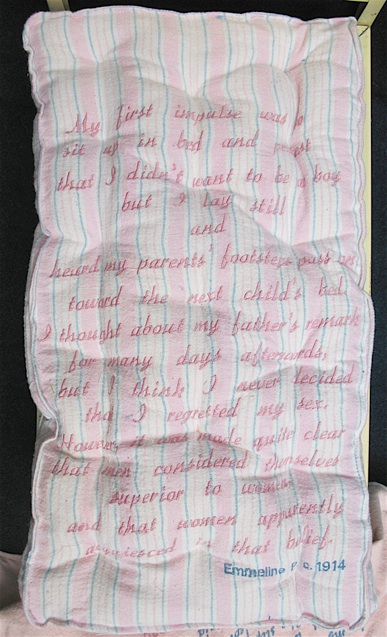 My first impulse was to
sit up in bed and protest
that I didn't want to be a boy
but I lay still
and
heard my parents' footsteps pass on
toward the next child's bed
I thought about my father's remark
for many days afterwards,
but I think I never decided
tha I regretted my sex.
However, it was made quite clear
that men considered themselves
superior to women
and that women apparently
acquiesced in that belief.
Emmeline P c. 1914